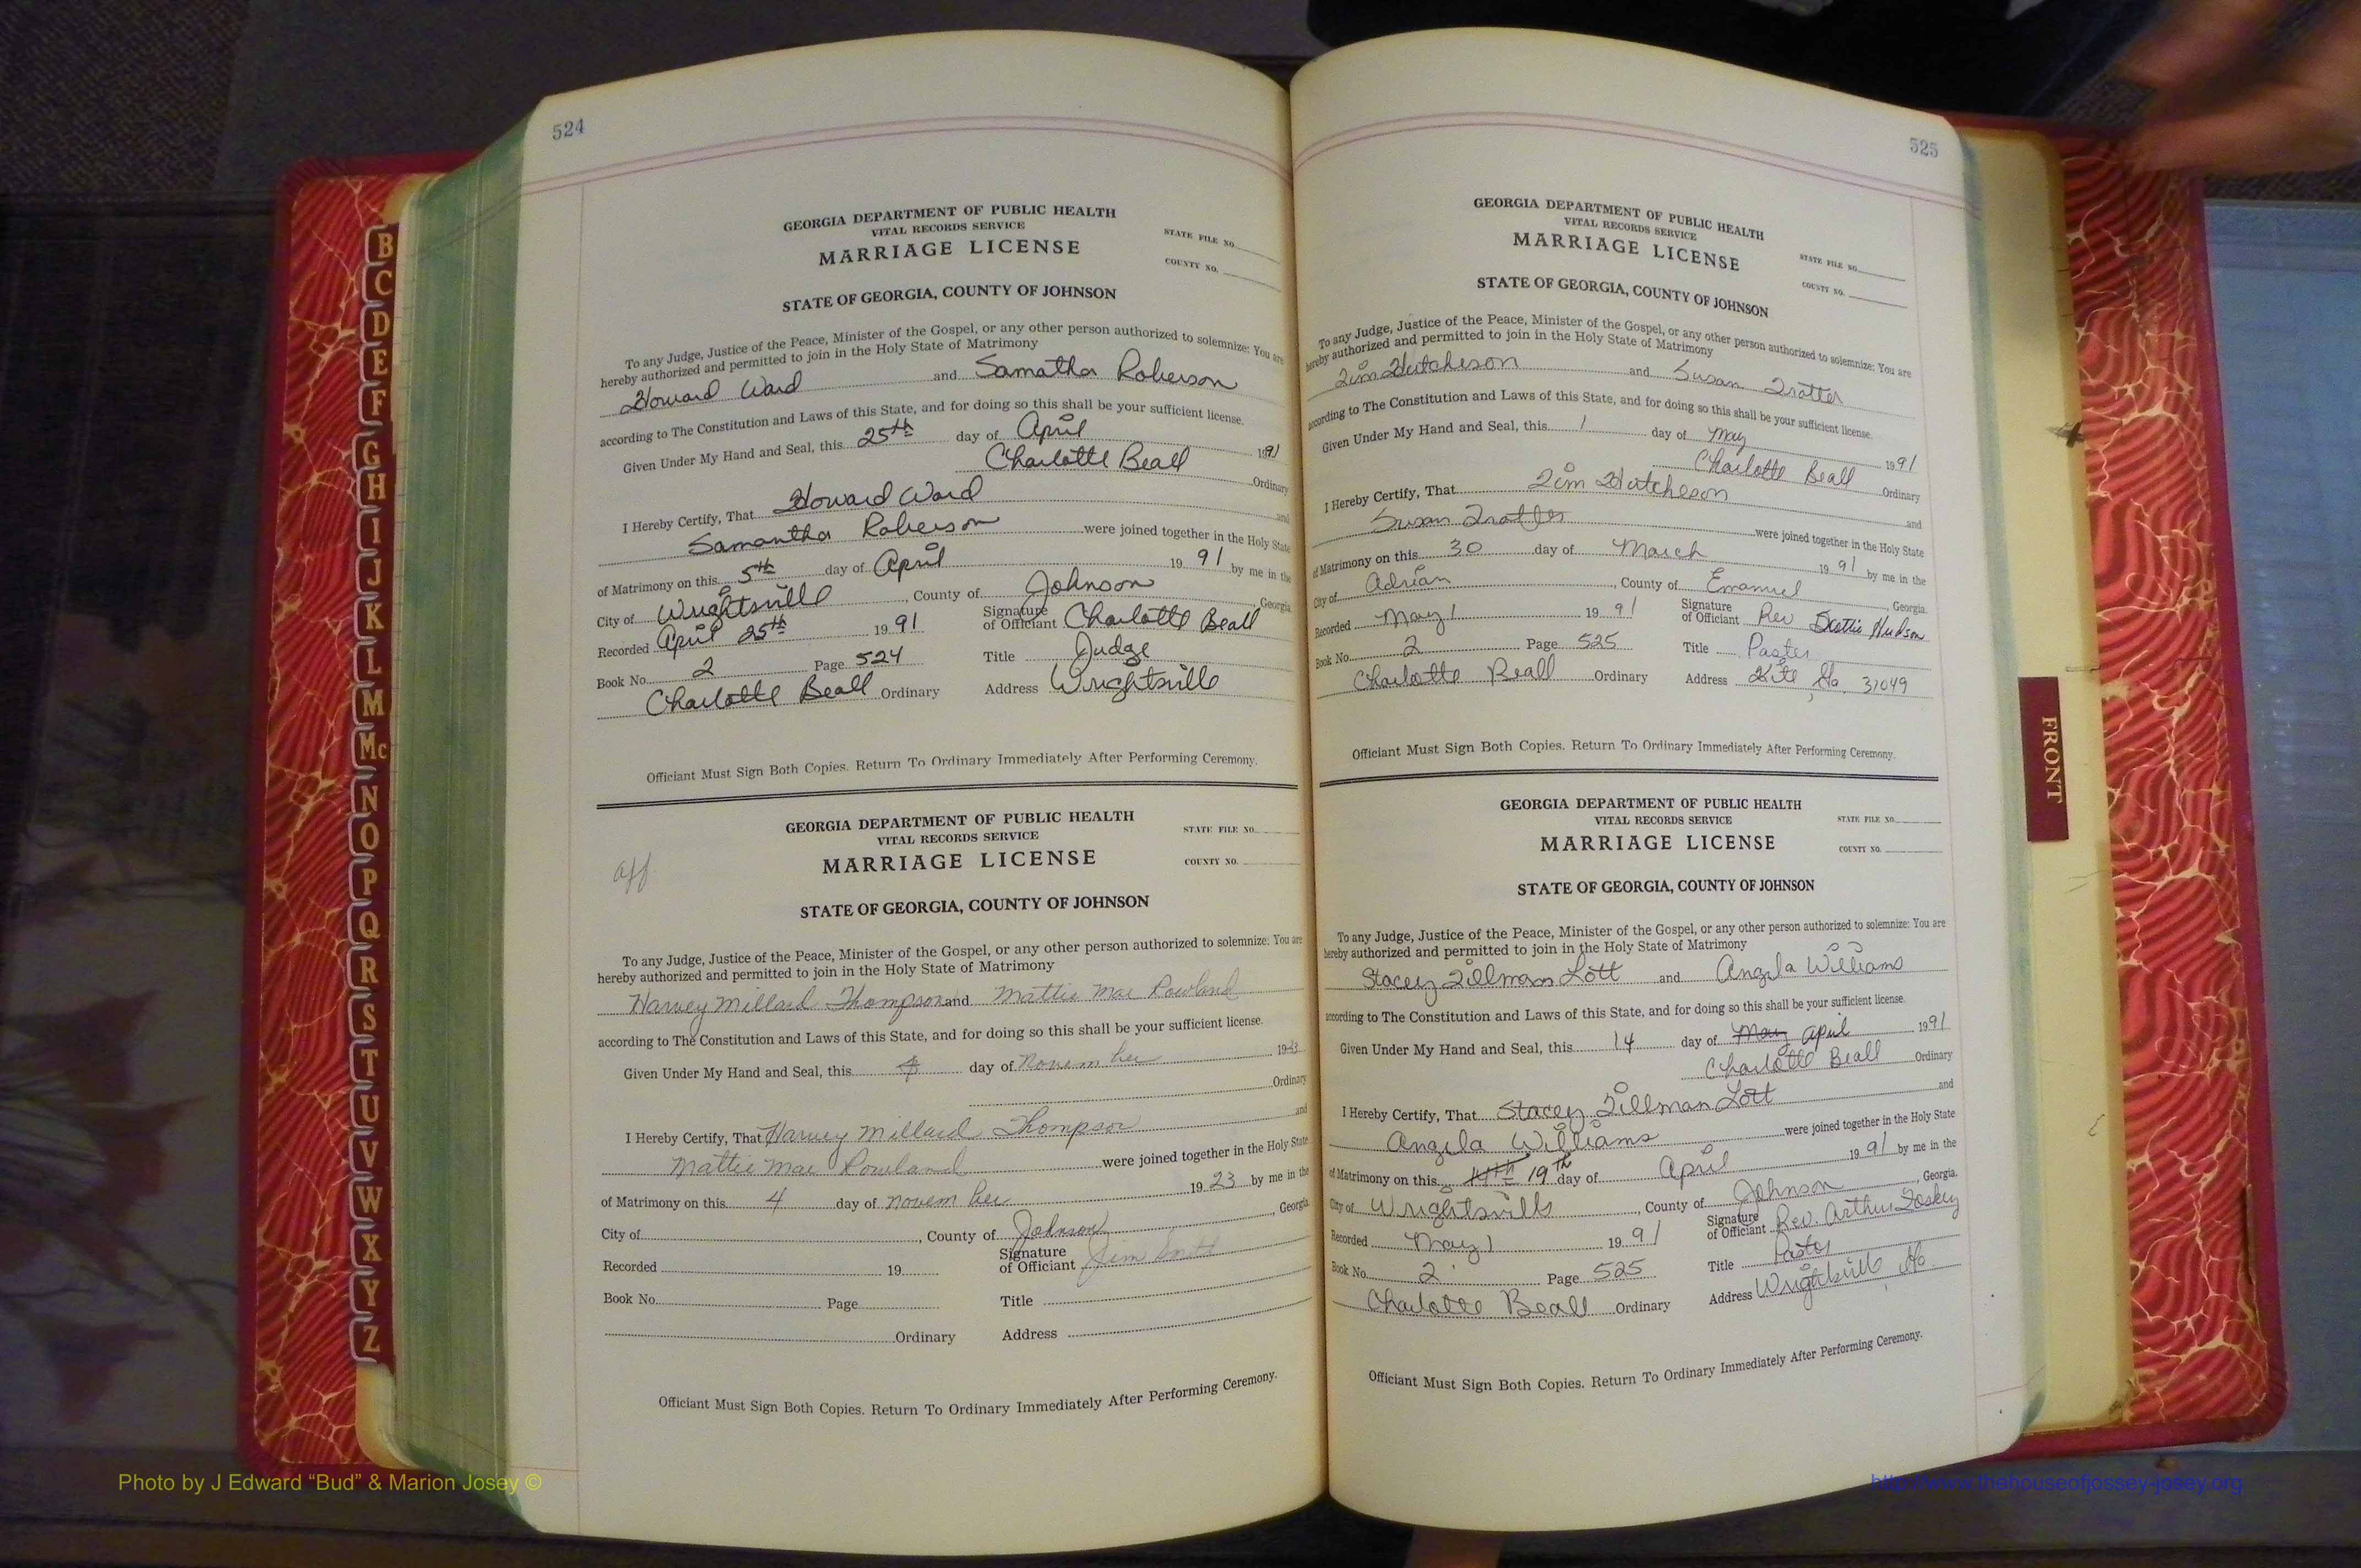 524
GEORGIA DEPARTMENT OF PUBLIC HEALTH
VITAL RECORDS SERVICE
MARRIAGE LICENSE
STATE FILE NO.
COUNTY NO.
STATE OF GEORGIA, COUNTY OF JOHNSON
To any Judge, Justice of the Peace, Minister of the Gospel, or any other person authorized to solemnize: You are
hereby authorized and permitted to join in the Holy State of Matrimony
Howard Ward and Samatha Roberson
according to The Constitution and Laws of this State, and for doing so this shall be your sufficient license.
Given Under My Hand and Seal, this 25th day of April 1991
Charlotte Beall Ordinary
I Hereby Certify, That Howard Ward and
Samantha Roberson were joined together in the Holy State
of Matrimony on this 5th day of April 19 91 by me in the
City of Wrightsville, County of Johnson, Georgia
Recorded April 25th 19 91 Signature of Officiant Charlotte Beall
Book No. 2 Page 524 Title Judge
Charlotte Beall Ordinary Address Wrightsville
Officiant Must Sign Both Copies. Return To Ordinary Immediately After Performing Ceremony.
GEORGIA DEPARTMENT OF PUBLIC HEALTH
VITAL RECORDS SERVICE
MARRIAGE LICENSE
STATE FILE NO.
COUNTY NO.
aff
STATE OF GEORGIA, COUNTY OF JOHNSON
To any Judge, Justice of the Peace, Minister of the Gospel, or any other person authorized to solemnize: You are
hereby authorized and permitted to join in the Holy State of Matrimony
Harvey Millard Thompson and Mattie Mae Rowland
according to The Constitution and Laws of this State, and for doing so this shall be your sufficient license.
Given Under My Hand and Seal, this 4 day of November 1923
Ordinary
I Hereby Certify, That Harvey Millard Thompson and
Mattie Mae Rowland were joined together in the Holy State
of Matrimony on this 4 day of November 19 23 by me in the
City of , County of Johnson, Georgia
Recorded 19 Signature of Officiant Jim Smith
Book No. Page Title
Ordinary Address
Officiant Must Sign Both Copies. Return To Ordinary Immediately After Performing Ceremony.
525
GEORGIA DEPARTMENT OF PUBLIC HEALTH
VITAL RECORDS SERVICE
MARRIAGE LICENSE
STATE FILE NO.
COUNTY NO.
STATE OF GEORGIA, COUNTY OF JOHNSON
To any Judge, Justice of the Peace, Minister of the Gospel, or any other person authorized to solemnize: You are
hereby authorized and permitted to join in the Holy State of Matrimony
Tim Hutcheson and Susan Tratter
according to The Constitution and Laws of this State, and for doing so this shall be your sufficient license.
Given Under My Hand and Seal, this 1 day of May 1991
Charlotte Beall Ordinary
I Hereby Certify, That Tim Hutcheson and
Susan Tratter were joined together in the Holy State
of Matrimony on this 30 day of March 19 91 by me in the
City of Adrian, County of Emanuel, Georgia.
Recorded May 1 19 91 Signature of Officiant Rev Scottie Hudson
Book No. 2 Page 525 Title Pastor
Charlotte Beall Ordinary Address Kite, Ga. 31049
Officiant Must Sign Both Copies. Return To Ordinary Immediately After Performing Ceremony.
GEORGIA DEPARTMENT OF PUBLIC HEALTH
VITAL RECORDS SERVICE
MARRIAGE LICENSE
STATE FILE NO.
COUNTY NO.
STATE OF GEORGIA, COUNTY OF JOHNSON
To any Judge, Justice of the Peace, Minister of the Gospel, or any other person authorized to solemnize: You are
hereby authorized and permitted to join in the Holy State of Matrimony
Stacey Tillman Lott and Angela Williams
according to The Constitution and Laws of this State, and for doing so this shall be your sufficient license.
Given Under My Hand and Seal, this 14 day of May April 1991
Charlotte Beall Ordinary
I Hereby Certify, That Stacey Tillman Lott and
Angela Williams were joined together in the Holy State
of Matrimony on this 14th 19th day of April 19 91 by me in the
City of Wrightsville, County of Johnson, Georgia.
Recorded May 1 19 91 Signature of Officiant Rev. Arthur
Book No. 2 Page 525 Title Pastor
Charlotte Beall Ordinary Address Wrightsville, Ga.
Officiant Must Sign Both Copies. Return To Ordinary Immediately After Performing Ceremony.
B
C
D
E
F
G
H
I
J
K
L
M
Mc
N
O
P
Q
R
S
T
U
V
W
X
Y
Z
FRONT
Photo by J Edward “Bud” & Marion Josey ©
http://www.thehouseofjossey-josey.org